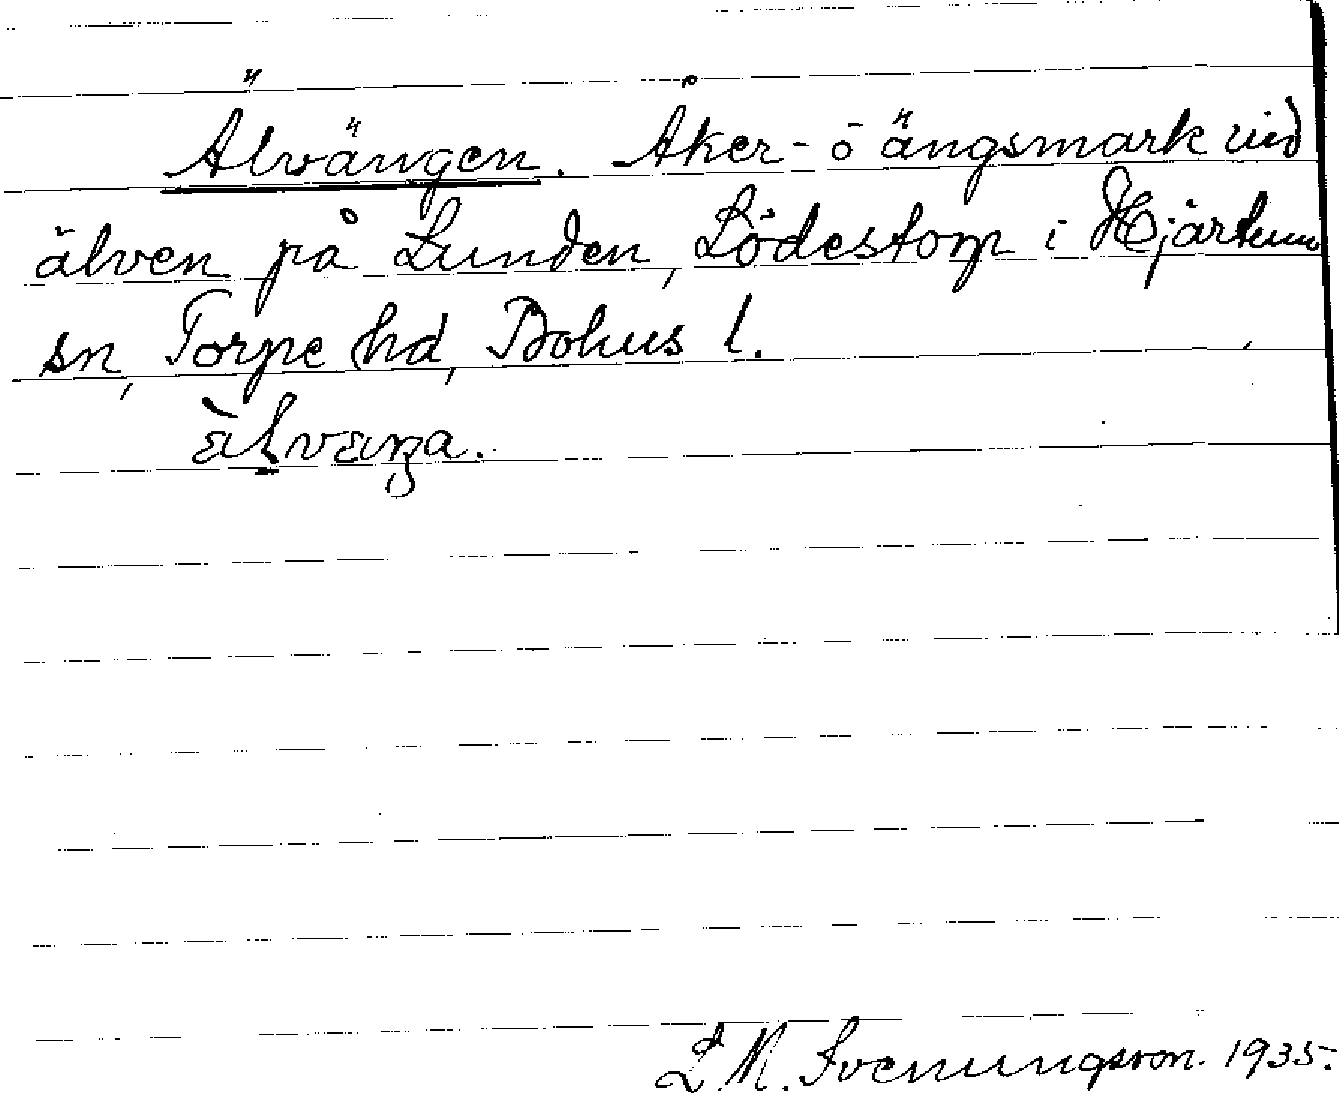 Älvängen. Åker- o ängsmark vid
älven på Lunden, Lödestorp i Hjärtum
sn, Torpe hd, Bohus l.
L M. Svenungsson. 1935.